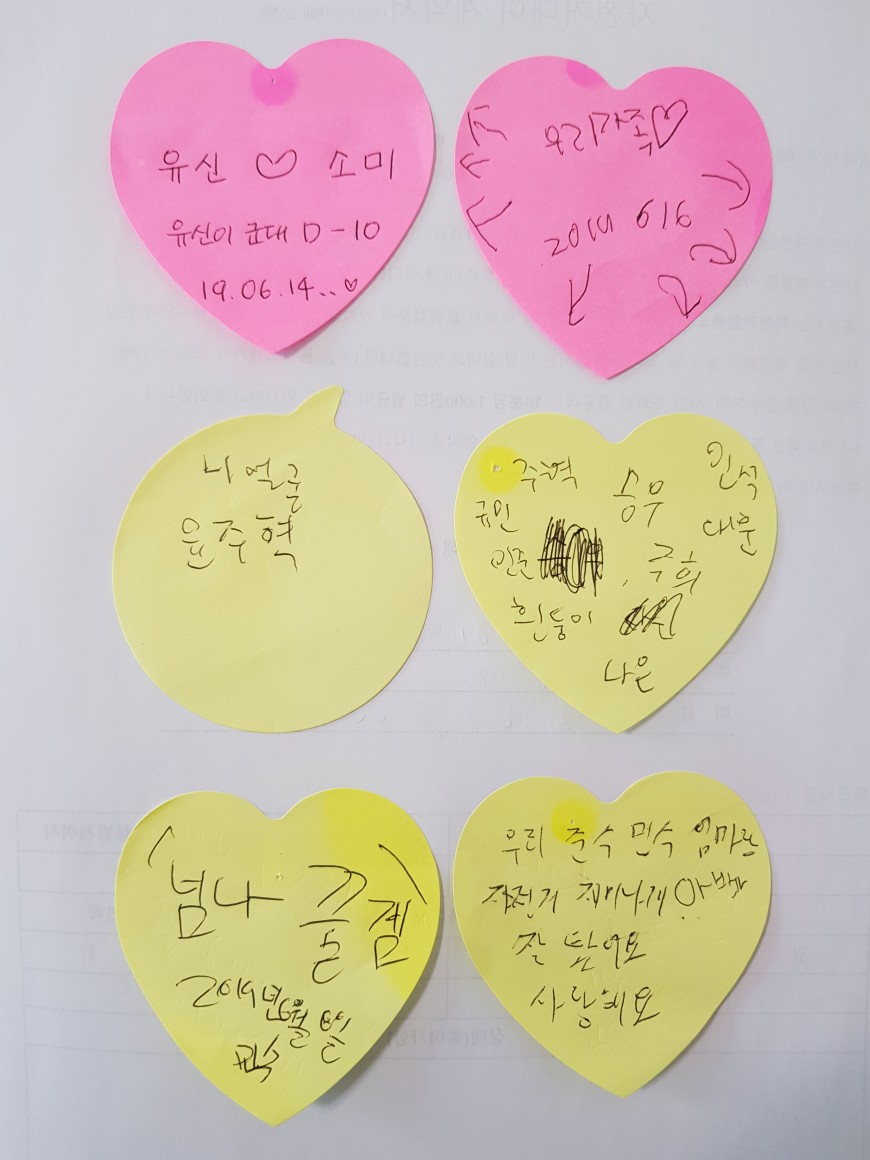 유신 ♡ 소미
유신이 군대 D-10
19.06.14..♡
우리가족♡
2019 6/6
니얼굴
윤주혁
주혁
승우
인석
규민
대훈
민준
주희
흰둥이
나은
넘나 꿀
잼
2019년 6월
우리 준식 민식 엄마랑
자전거 재미나게
잘 탔어요
사랑해요